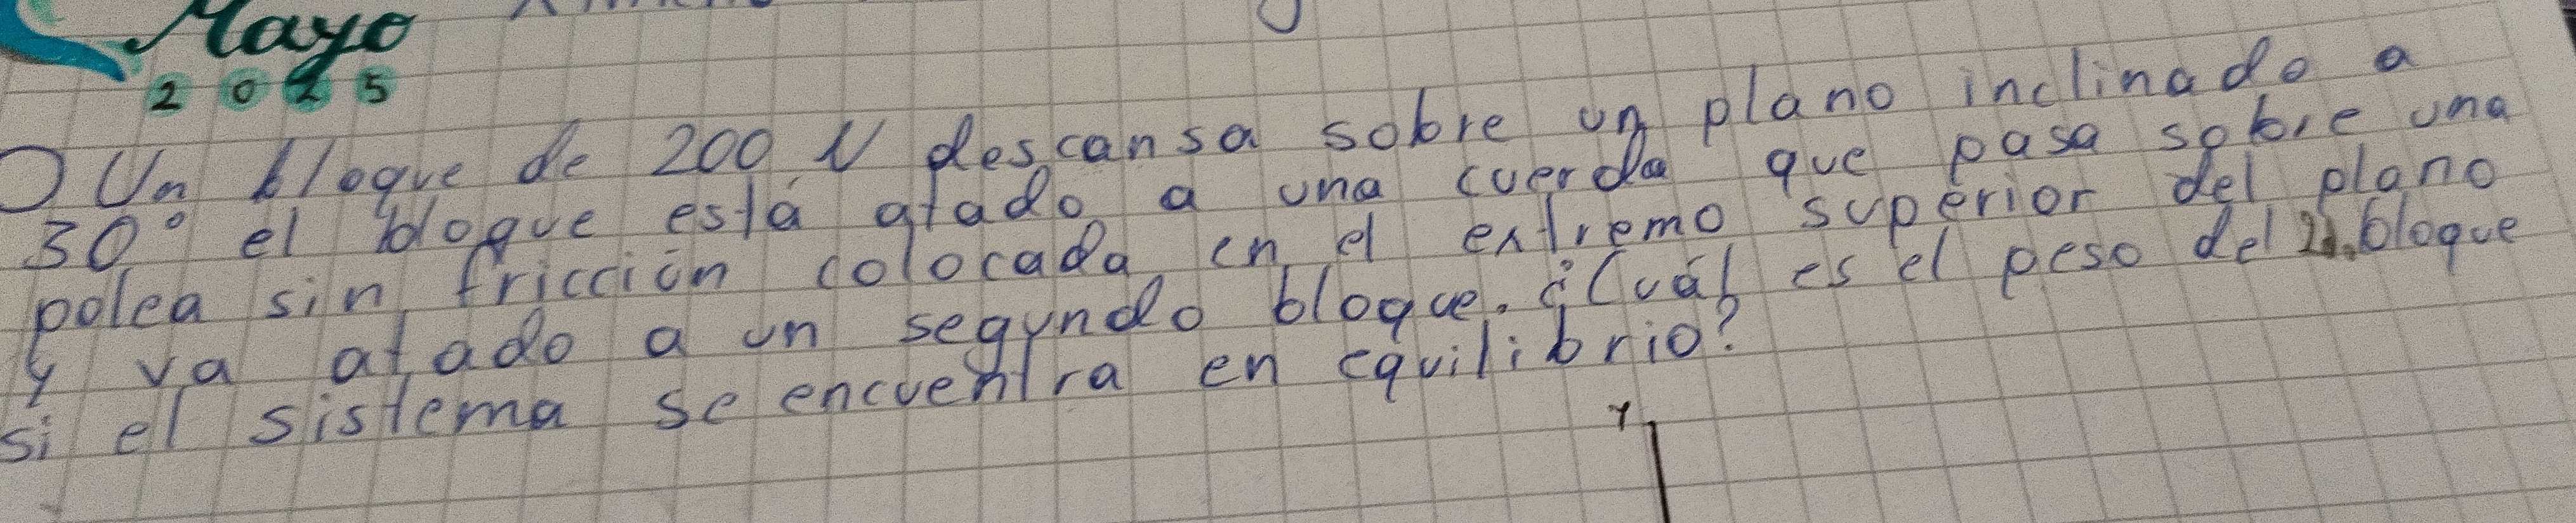 Mayo
2025
Un bloque de 200 N descansa sobre un plano inclinado a
30° el bloque está atado a una cuerda que pasa sobre una
polea sin fricción colocada en el extremo superior del plano
y va atado a un segundo bloque. ¿Cuál es el peso del bloque
si el sistema se encuentra en equilibrio?
Y